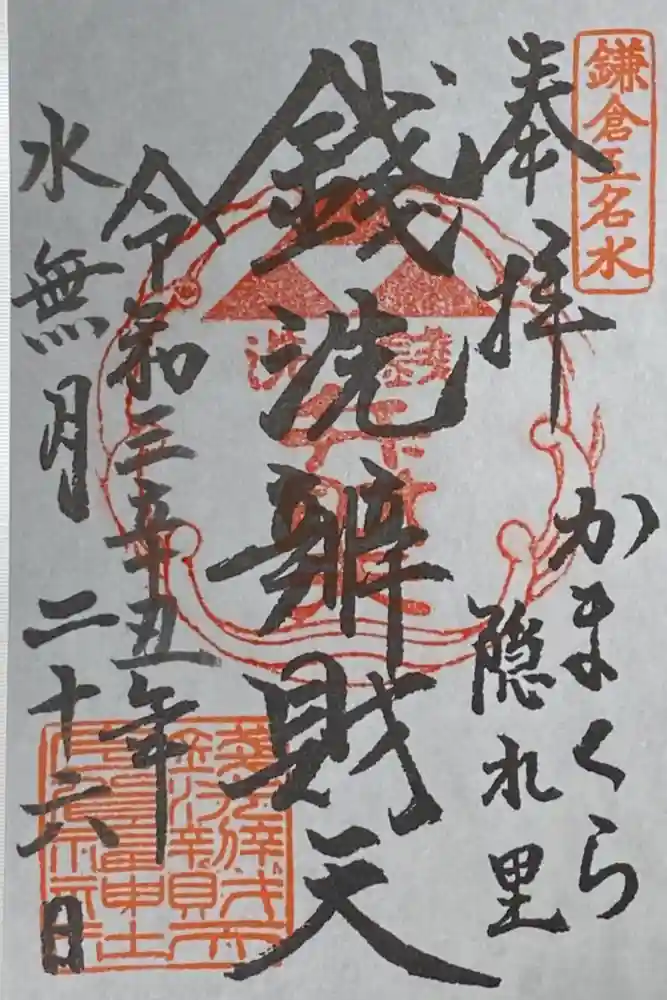 鎌倉五名水
奉拝
かまくら
隠れ里
銭洗辨財天
令和三辛丑年
水無月二十六日